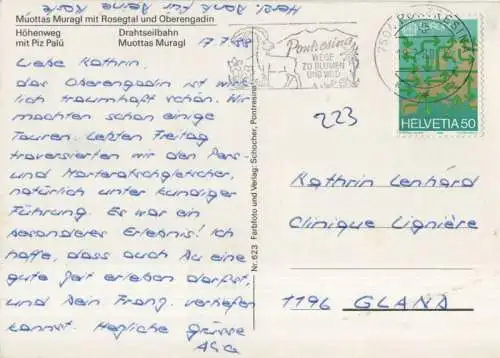 Muottas Muragl mit Rosegtal und Oberengadin
Höhenweg
mit Piz Palü
Drahtseilbahn
Muottas Muragl
Herzl. Dank für
17.7.88
Liebe Kathrin,
das Oberengadin ist wirk-
lich traumhaft schön. Wir
machten schon einige
Touren. Letzten Freitag
traversierten wir den Pers-
und Morteratschgletscher,
natürlich unter kundiger
Führung. Es war ein
besonderes Erlebnis! Ich
hoffe, dass auch Du eine
gute Zeit erleben darfst,
und Dein Franz. vertiefen
kannst. Herzliche Grüsse
Nr. 623 Farbfoto und Verlag: Schocher, Pontresina
Pontresina
WEGE
ZU BLUMEN
UND WILD
PONTRESINA
HELVETIA 50
223
Kathrin Lenhard
Clinique Lignière
1196 GLAND